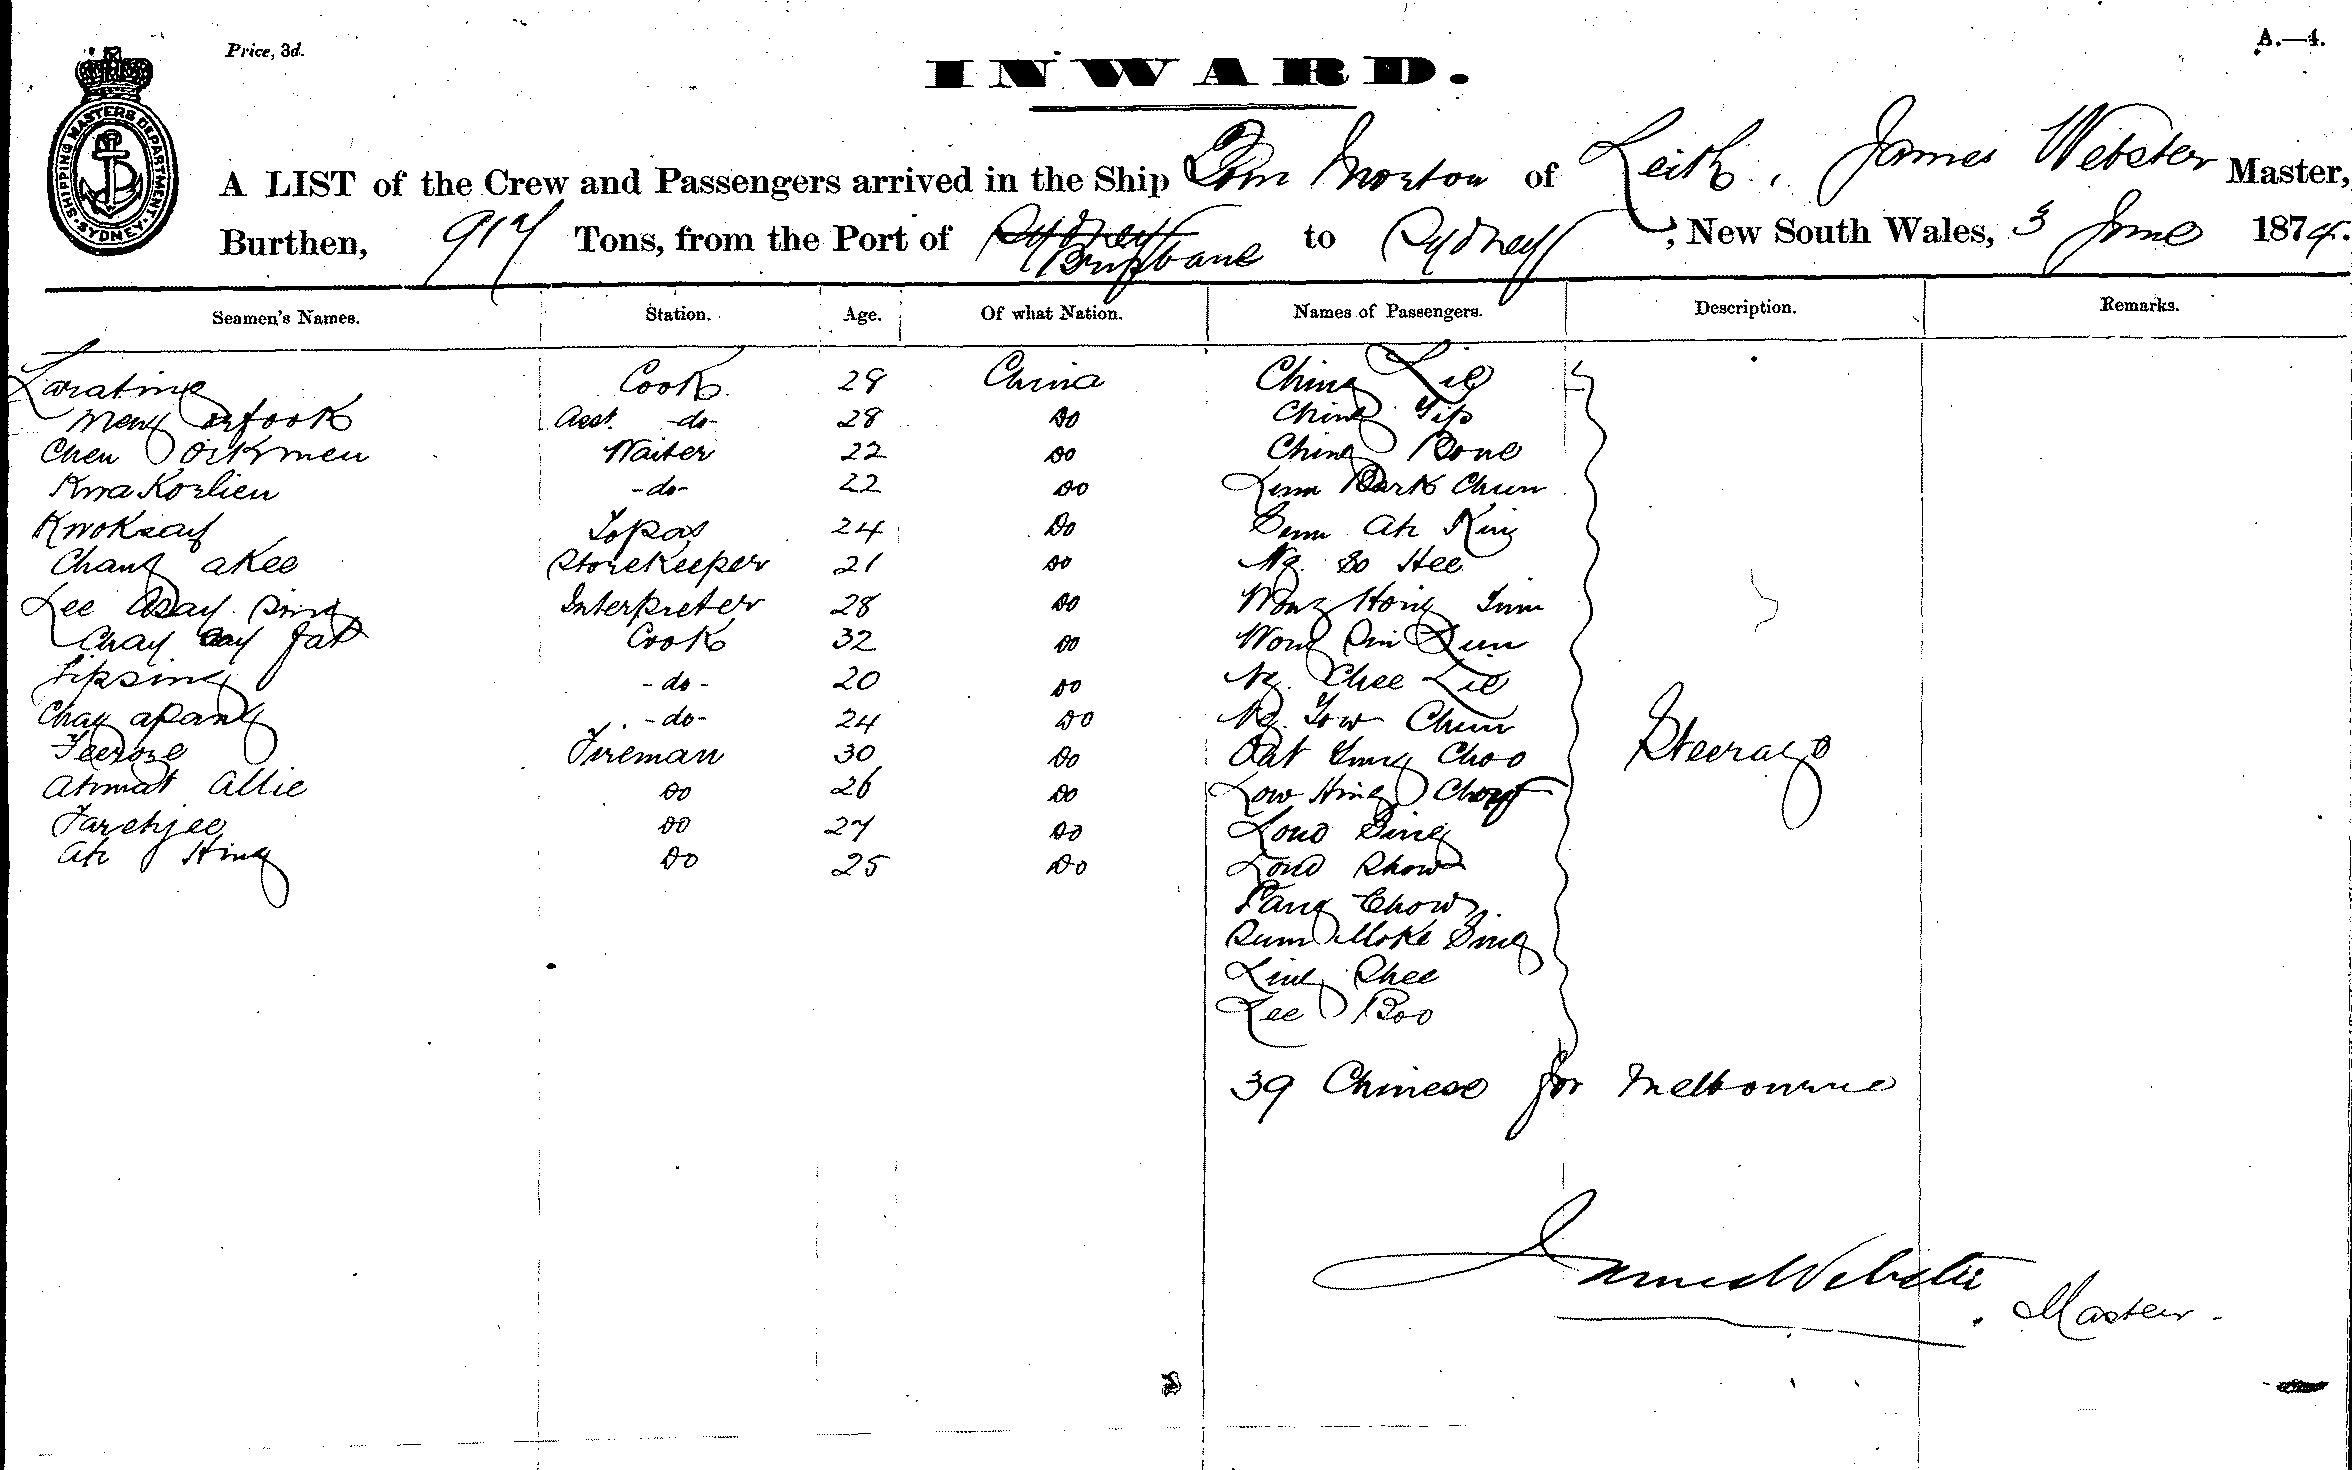 Price, 3d.
A.—4.
INWARD.
SHIPPING MASTERS DEPARTMENT SYDNEY
A LIST of the Crew and Passengers arrived in the Ship Tom Morton of Leith, James Webster Master,
Burthen, 917 Tons, from the Port of Sydney Brisbane to Sydney, New South Wales, 3 June 1874.
Seamen's Names. Station. Age. Of what Nation. Names of Passengers. Description. Remarks.
Cook 29 China Ching Lie
Asst. -do- 28 Do Ching Yip
Chen Waiter 22 Do Ching Bone
-do- 22 Do Lum Bark Chun
Kwoksay Topas 24 Do Ah King
Chang akee Storekeeper 21 Do Ng. So Hee
Lee Asay Sing Interpreter 28 Do Wong Hong
Chay Fat Cook 32 Do Wong Sin Lun
Sipsing -do- 20 Do Ng. Chee Lie
Chay apang -do- 24 Do Ng. Yow Chun
Feeroze Fireman 30 Do Choo Steerage
Atimat Allie Do 26 Do Low Hing Choy
Farehjee Do 27 Do Sing
Ah Hing Do 25 Do Show
Pang Chow
Sum Moke Sing
Ling Shee
Lee Boo
39 Chinese for Melbourne
James Webster
Master.